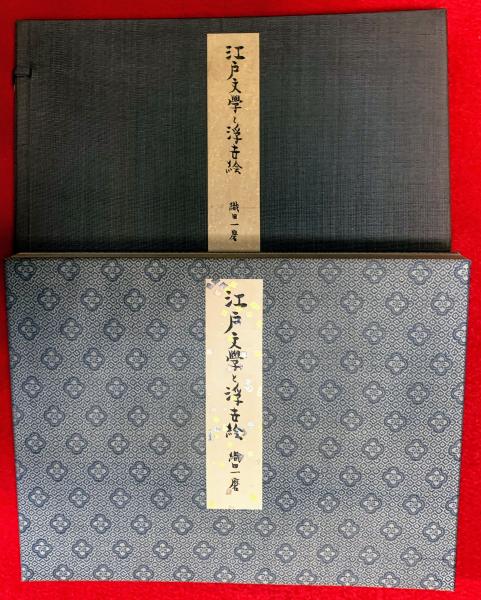 江戸文學と浮世絵
織田一磨
江戸文學と浮世絵
織田一磨